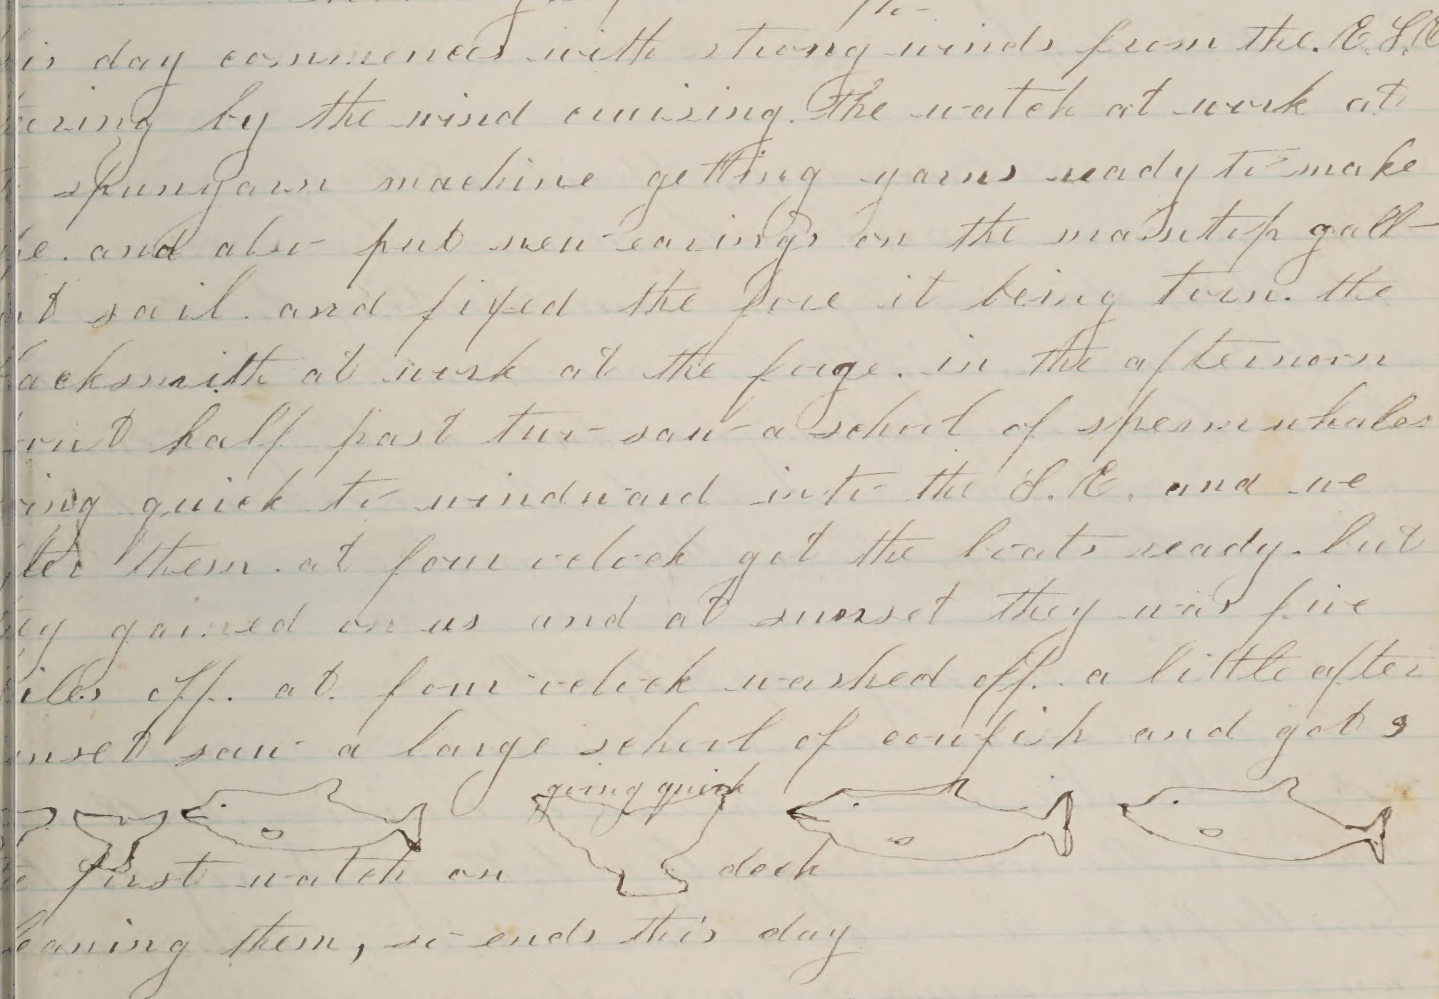 is day commences with strong winds from the. E.S.E
ering by the wind cruising. The watch at work at
spunyarn machine getting yarns ready to make
pe. and also put new earings on the maintop gall-
nt sail. and fixed the fore it being torn. the
lacksmith at work at the forge. in the afternoon
bout half past two saw a school of sperm whales
oing quick to windward into the S.E. and we
fter them. at four oclock got the boats ready. but
ey gained on us and at sunset they was five
iles off. at. four oclock washed off. a little after
unset saw a large school of cowfish and got 3
going quick
e first watch on deck
leaning them, so ends this day